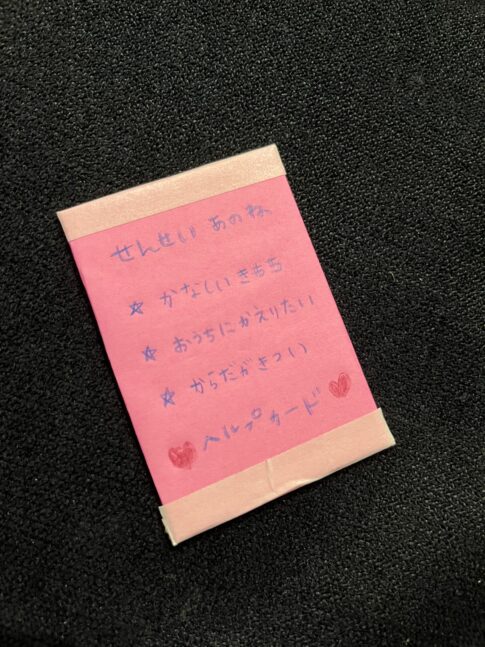 せんせい あのね
☆ かなしい きもち
☆ おうちにかえりたい
☆ からだがきつい
♥ ヘルプカード ♥